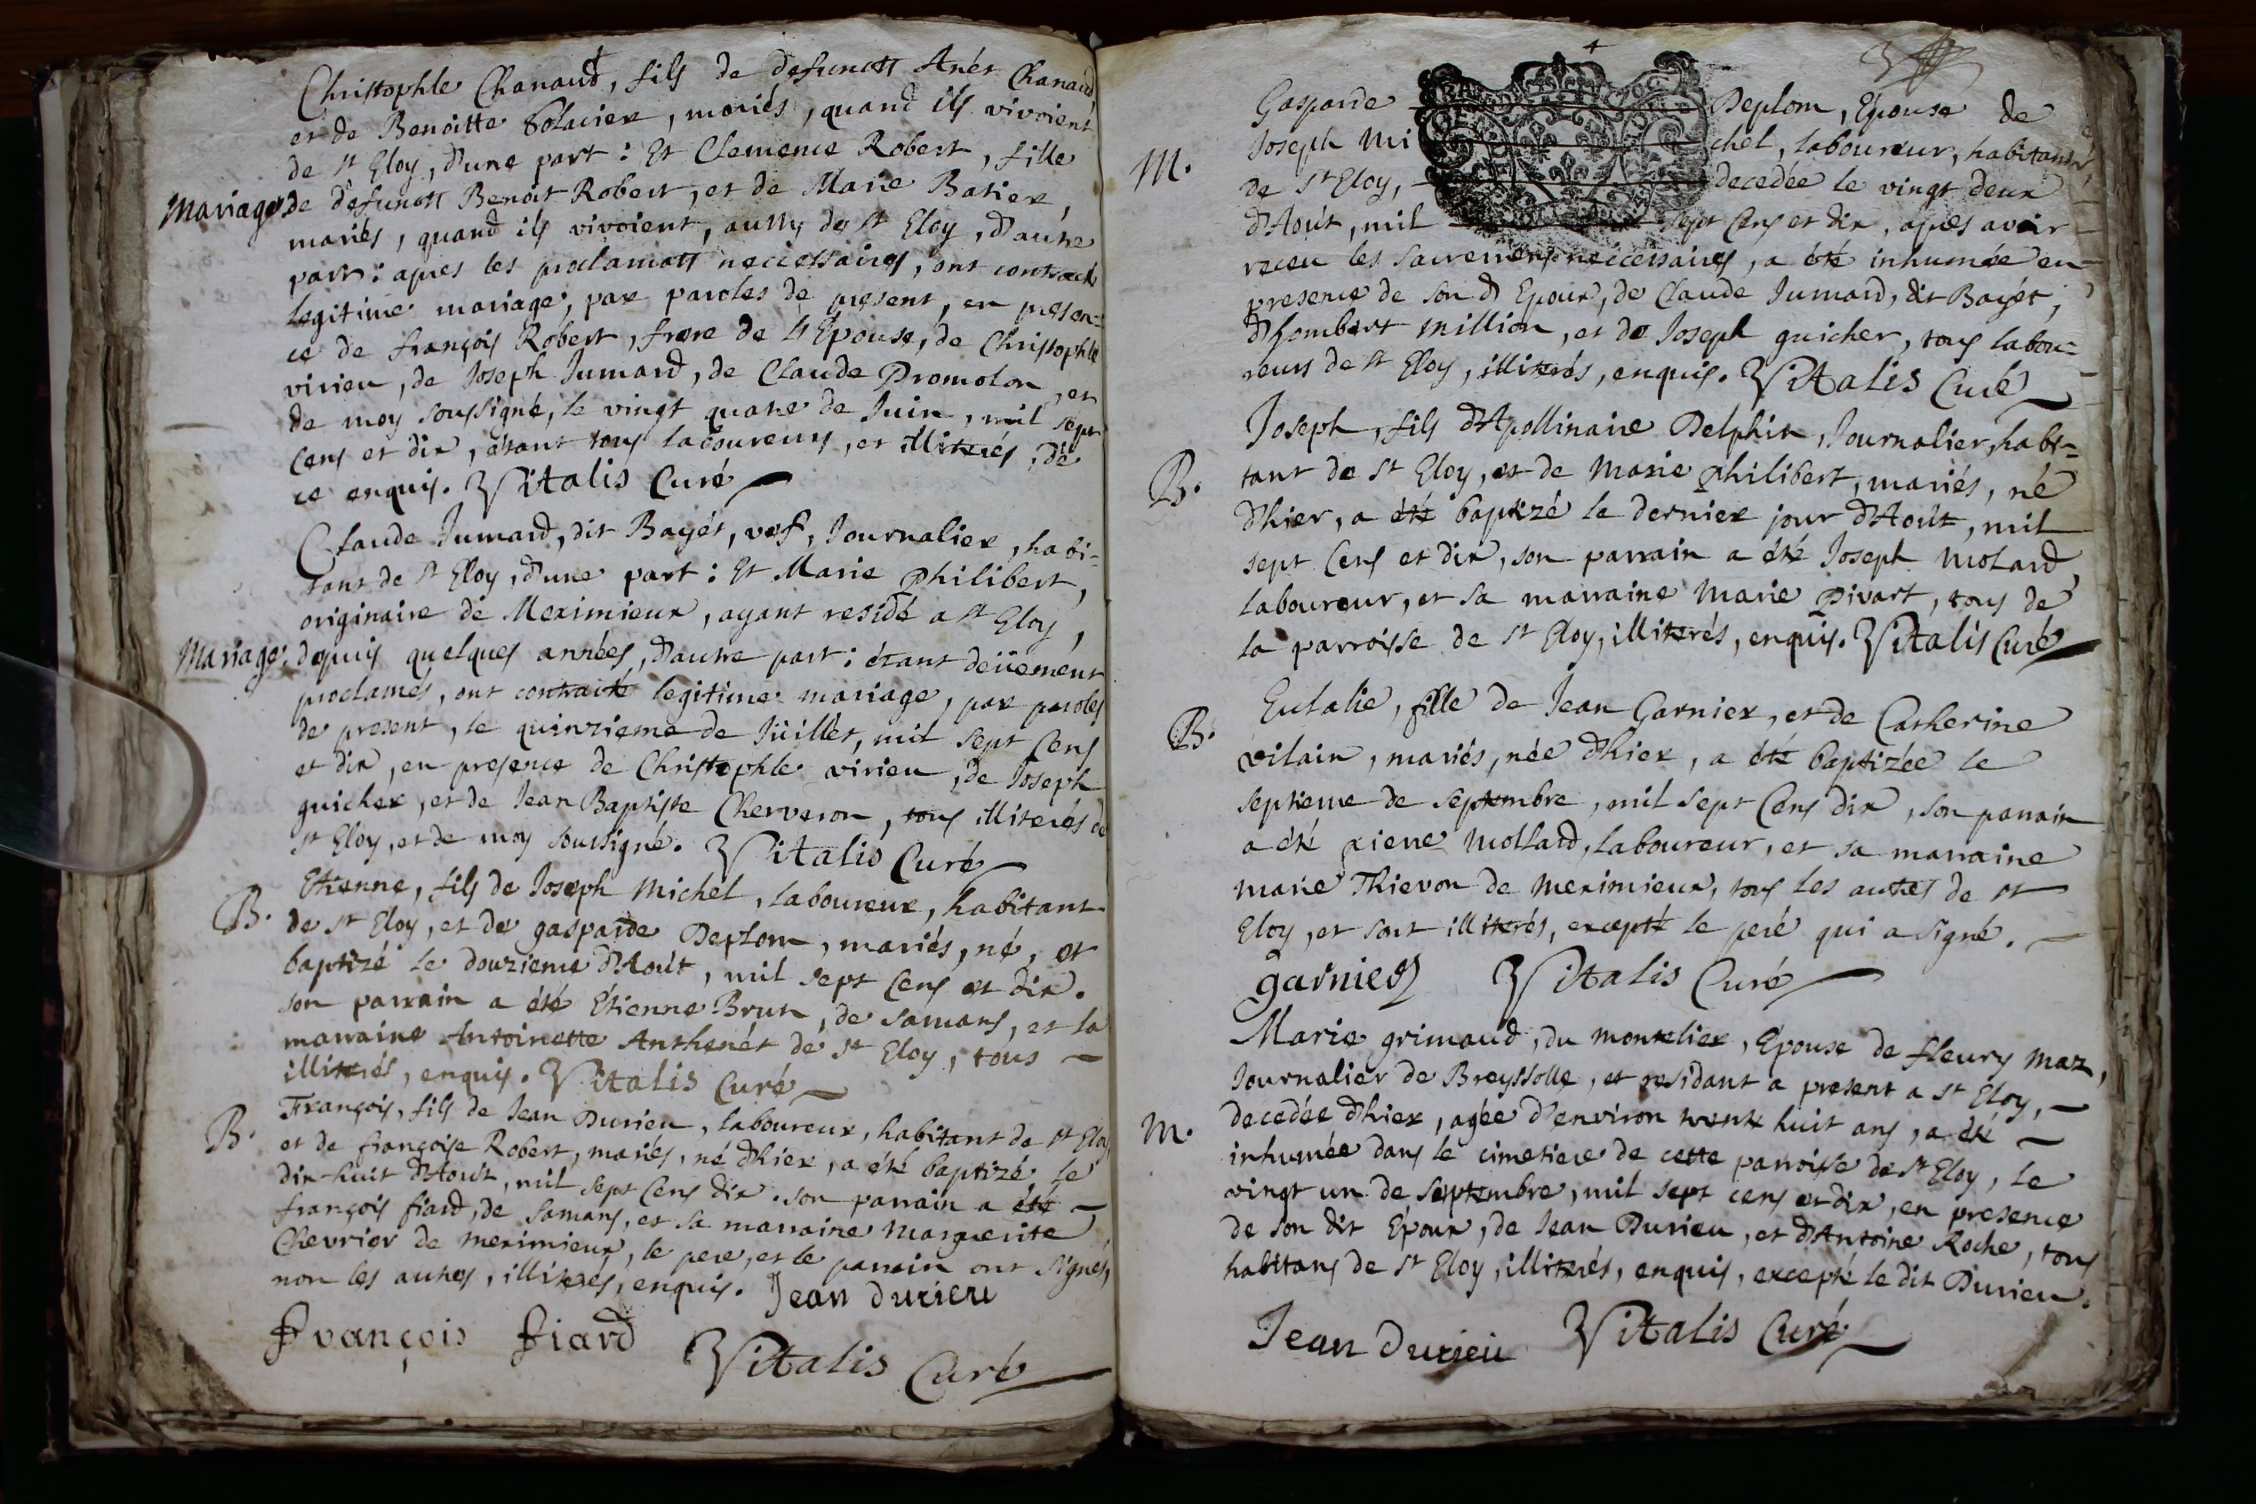 Christophle Chanaud, fils de defunctz Anés Chanaud,
et de Benoitte Solacier, mariés, quand ils vivoient
de st Eloy, d'une part : Et Clemence Robert, fille
Mariage. de defunctz Benoit Robert, et de Marie Batier,
mariés, quand ils vivoient, aussy de st Eloy, d'autre
part : apres les proclamaōs neccessaires, ont contracté
legitime mariage, par paroles de present, en presen=
ce de françois Robert, frere de l'Epouse, de Christophle
virieu, de Joseph Jumard, de Claude Promolon, et
de moy soussigné, le vingt quatre de Juin, mil sept
Cens et dix, étant tous laboureurs, et illiterés, de
ce enquis. Vitalis Curé
Claude Jumard, dit Bayét, vef, Journalier, habi-
tant de st Eloy, d'une part : Et Marie Philibert,
originaire de Meximieux, ayant residé a st Eloy,
Mariage. depuis quelques années, d'autre part : étant deüement
proclamés, ont contracté legitime mariage, par paroles
de present, le quinzieme de Jüillet, mil sept Cens
et dix, en presence de Christophle virieu, de Joseph
guicher, et de Jean Baptiste Cherveron, tous illiterés de
st Eloy, et de moy soussigné. Vitalis Curé
Etienne, fils de Joseph Michel, laboureur, habitant
B. de st Eloy, et de gasparde Deplom, mariés, né, et
baptizé le douzieme d'Aoút, mil sept Cens et dix.
son parrain a été Etienne Brun, de samans, et la
marraine Antoinette Anthenét de st Eloy, tous
illiterés, enquis. Vitalis Curé
François, fils de Jean Durieu, laboureur, habitant de st Eloy,
B. et de françoise Robert, mariés, né d'hier, a été baptizé le
dix-huit d'Aoút, mil sept Cens dix. son parrain a été
françois fiard, de samans, et sa marraine Marguerite
Chevrier de meximieux, le pere, et le parrain ont signés,
non les autres, illiterés, enquis. Jean durieu
François fiard Vitalis Curé
Gasparde Deplom, Epouse de
Joseph Mi chel, laboureur, habitans
M. de st Eloy, decedée le vingt deux
d'Aoút, mil sept Cens et dix, apres avoir
receu les sacremens neccessaires, a été inhumée en
presence de son d Epoux, de Claude Jumard, dit Bayét,
d'hombert million, et de Joseph guicher, tous labou=
reurs de st Eloy, illiterés, enquis. Vitalis Curé
Joseph, fils d'Apollinaire Delphin, Journalier, habi=
B. tant de st Eloy, et de Marie Philibert, mariés, né
d'hier, a été baptizé le dernier jour d'Aoút, mil
sept Cens et dix, son parrain a été Joseph Molard
laboureur, et sa marraine Marie Pivart, tous de
la parroisse de st Eloy, illiterés, enquis. Vitalis Curé
Eulalie, fille de Jean Garnier, et de Catherine
B. vilain, mariés, née d'hier, a été baptizée le
septieme de septembre, mil sept Cens dix, son parrain
a été pierre Mollard, laboureur, et sa marraine
marie Thievon de meximieux, tous les autres de st
Eloy, et sont illiterés, excepté le peré qui a signé.
garnier Vitalis Curé
Marie grimaud, du montelier, Epouse de fleury Maz,
Journalier de Breyssolle, et residant a present a st Eloy,
decedée d'hier, agée d'environ trente huit ans, a été
M. inhumée dans le cimetiere de cette parroisse de st Eloy, le
vingt un de septembre, mil sept cens et dix, en presence
de son dit Epoux, de Jean Durieu, et d'Antoine Roche, tous
habitans de st Eloy, illiterés, enquis, excepté le dit Durieu.
Jean durieu Vitalis Curé